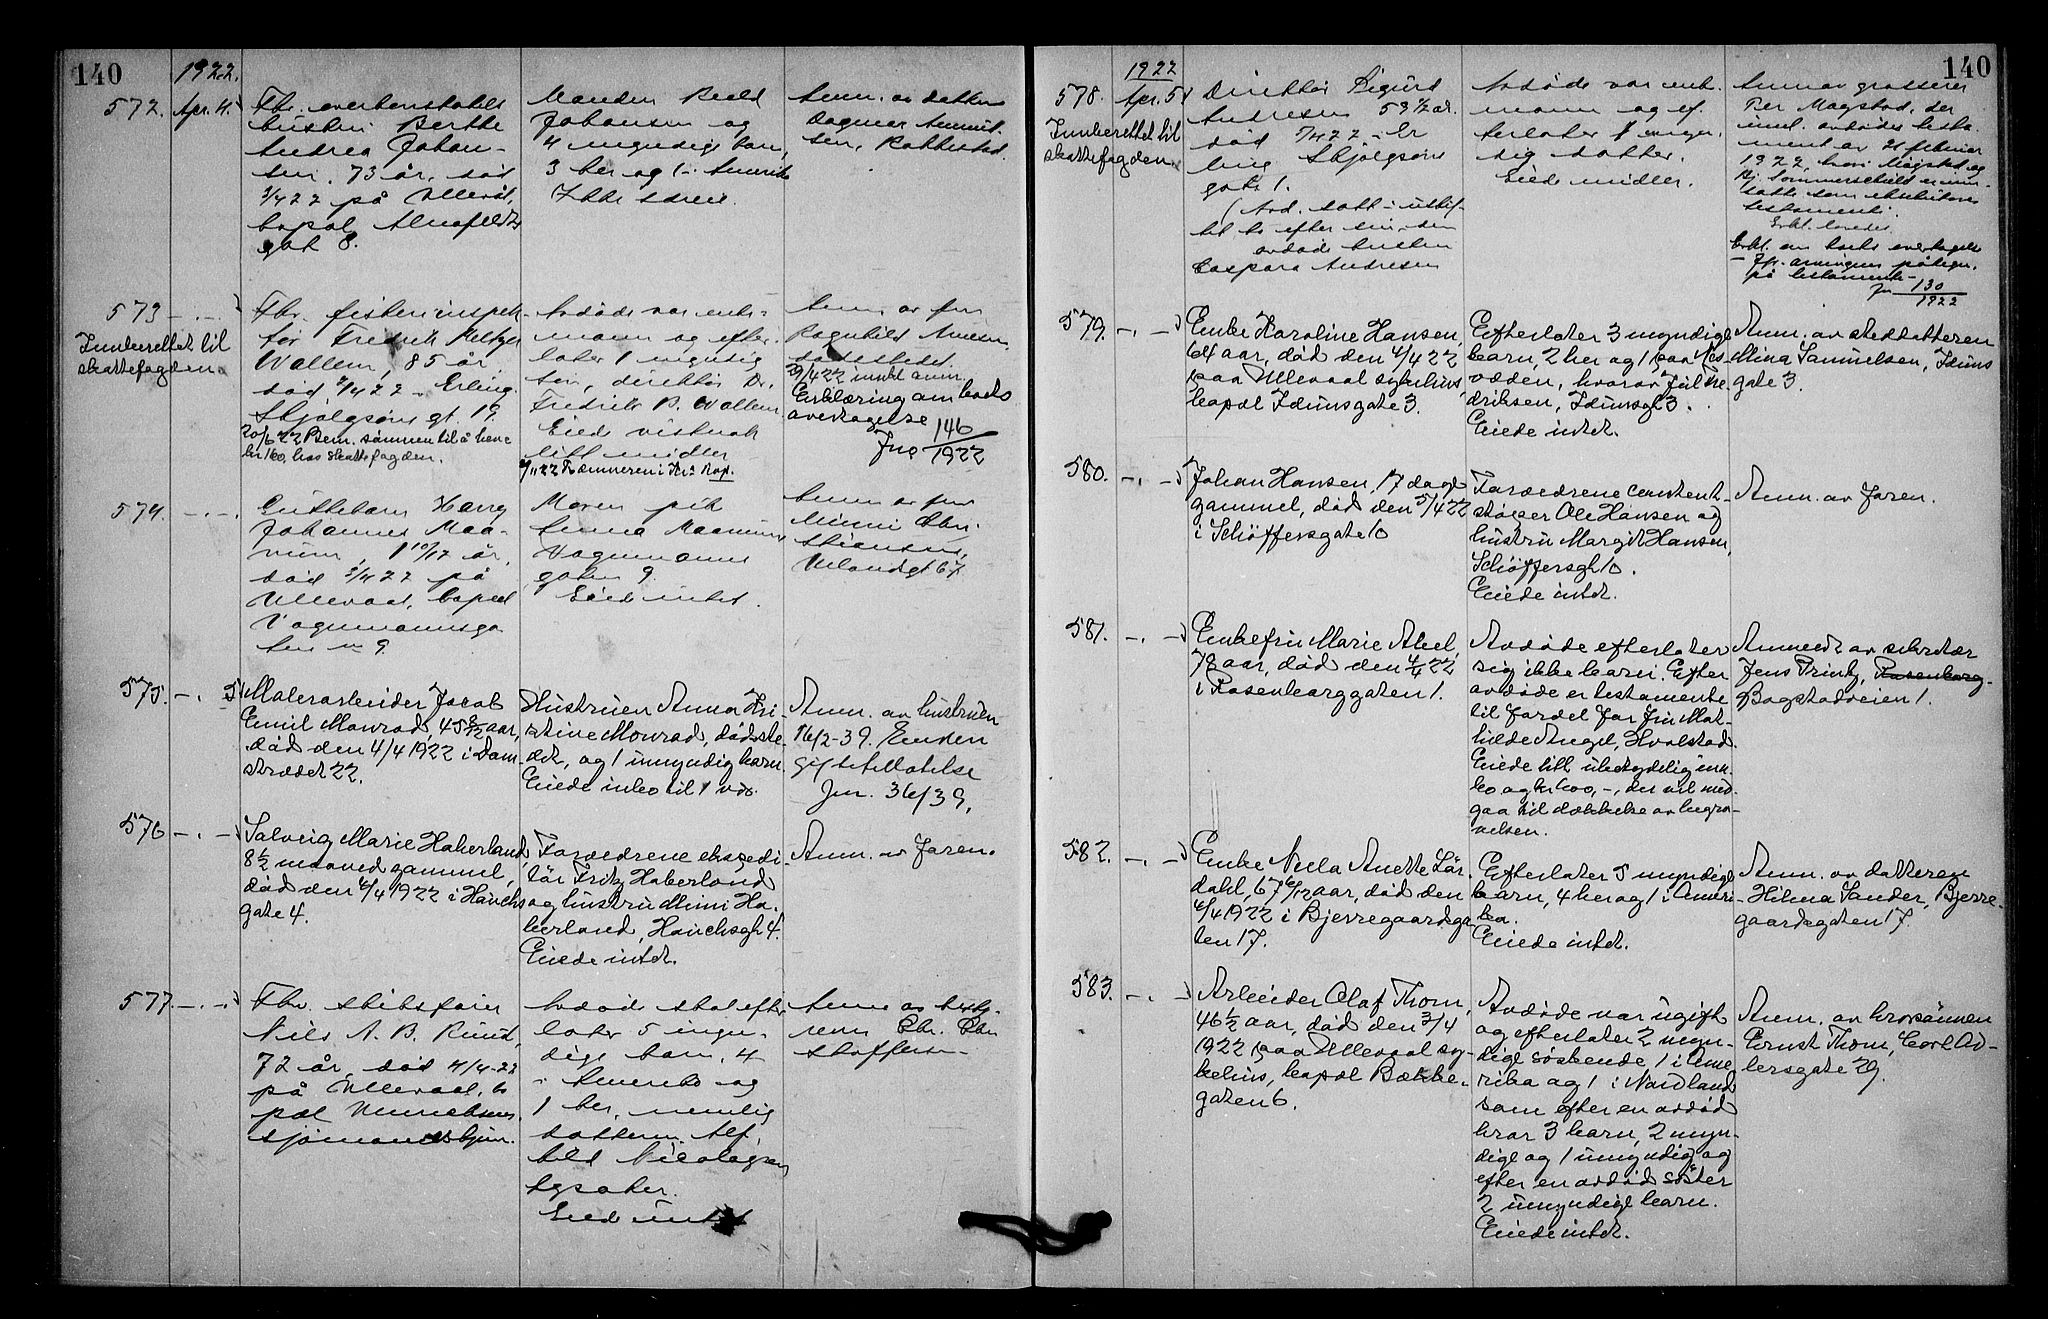 140
1922.
572. Apr. 4.
Fhv. overkonstabels
hustru Berthe
Andrea Johan-
sen, 73 år, død
på Ullevål,
gat 8.
Manden
Johansen og
4 myndige barn,
3 her og 1 i Amerika
Anm. av datter
Dagmar
573. -.-
Innberettet til
skattefogden.
Fhv. fiskeriinspek-
tør Fredrik Meltzer
Wallem, 85 år,
død 4/4 22 Erling
Skjalgsøns gt. 19.
20/6 22 Bem. sønnen til å heve
kr 160, hos skattefogden.
Avdøde var enke-
mann og efter-
later 1 myndig
søn, direktør Dr.
Fredrik B. Wallem
Eiede
litt midler
Anm. av frk
Ragnhild
dødsstedet.
29/4 22 innkl anm.
Erklæring om boets
overtagelse
Jnr 146/1922
574. -.-
Guttebarn Harry
Johannes Maa-
num, 1 10/12 år,
død 3/4 22 på
Ullevaal, bopæl
Vognmannsga-
ten nr 9.
Moren pik
Anna Maanum
Vognmanns
gaten 9.
Eied intet.
Anm. av fru
Minni Chri-
stiansen,
Uelandsgt 67.
575. -. 5/
Malerarbeider Jacob
Emil Monrad, 45 8/12 aar,
død den 4/4 1922 i Dam-
strædet 22.
Hustruen Anna Kri-
stine Monrad, dødste-
det, og 1 umyndig barn.
Eiede inbo til 1 vær.
Anm. av hustruen
16/2-39. Enken
gifteattest
Jnr. 36/39,
576 -.-
Solveig Marie Haberland
8 1/2 maaned gammel,
død den 4/4 1922 i Hauchs
gate 4.
Forældrene ekspedi-
tør Fritz Haberland
og hustru Mimi Ha-
berland, Hauchsgt 4.
Eiede intet.
Anm. av faren.
577. -.-
Fhv. skibsfører
Niels A. B. Ruud,
72 år, død 4/4-22
på Ullevaal, bo
pæl
sjømandshjem.
Avdøde skal efter
later 5 myn-
dige barn, 4
i Amerika og
1 her, nemlig
datteren Alf-
hild Nicolaysen
Eied intet
Anm av besty-
reren Chr. Chri
stoffersen
140
1922
578. Apr. 5/
Innberettet til
skattefogden.
Direktør Sigurd
Andresen 59 1/2 år.
død 5/4 22 i Er
ling Skjalgsøns
gate 1.
(Avd. satt i uskif-
tet bo efter sin den
avdøde hustru
Caspara Andresen
Avdøde var enke-
mann og ef-
terlater 1 myn-
dig datter.
Eied midler.
Anm av grosserer
Per Magstad, der
innl. avdødes testa-
ment av 21 februar
1922, hvori Magstad og
Hj. Sommerschild er inn-
satte som eksekutorer
testamenti.
Erkl. loves.
Erkl. om boets overtagelse
på testamente
Jnr 130/1922
579. -.-
Enke Karoline Hansen,
64 aar, død den 4/4 22
paa Ullevaal sykehus,
bopæl Idunsgate 3.
Efterlater 3 myndige
barn, 2 her og 1 paa Nes-
odden, hvorav Julie Fre-
driksen, Idunsgt 3.
Eiede intet.
Anm. av steddatteren
Mina Samuelsen, Iduns
gate 3.
580. -.-
Johan Hansen, 17 dage
gammel, død den 5/4 22
i Schøffersgate 10
Forældrene cement-
støper Ole Hansen og
hustru Margit Hansen,
Schøffersgt 10.
Eiede intet.
Anm. av faren.
581. -.-
Enkefru Marie Abel,
78 aar, død den 4/4 22
i Rosenborggaten 1.
Avdøde efterlater
sig ikke barn. Efter
avdøde er testamente
til fordel for fru Mat-
hilde Angel, Hvalstad.
Eiede litt ubetydelig inn-
bo og kr 600,-, der vil med-
gaa til dækkelse av begra-
velsen.
Anmeldt av sekretær
Jens Printz, Rosenborg-
Bogstadveien 1.
582. -.-
Enke Nella Anette Lår-
dahl, 67 6/12 aar, død den
4/4 1922 i Bjerregaardsga
ten 17.
Efterlater 5 myndige
barn, 4 her og 1 i Ameri-
ka.
Eiede intet.
Anm. av datteren
Hilma Sander, Bjerre-
gaardsgaten 17.
583. -.-
Arbeider Olaf Thom,
46 1/2 aar, død den 3/4
1922 paa Ullevaal sy-
kehus, bopæl Bakke-
gaten 6.
Avdøde var ugift
og efterlater 2 myn-
dige søskende, 1 i Ame
rika og 1 i Nordland
som efter en avdød
bror 3 barn, 2 myn-
dige og 1 umyndig og
efter en avdød søster
2 umyndige barn.
Eiede intet.
Anm. av brorsønnen
Ernst Thom, Carl Ad-
lersgate 29.